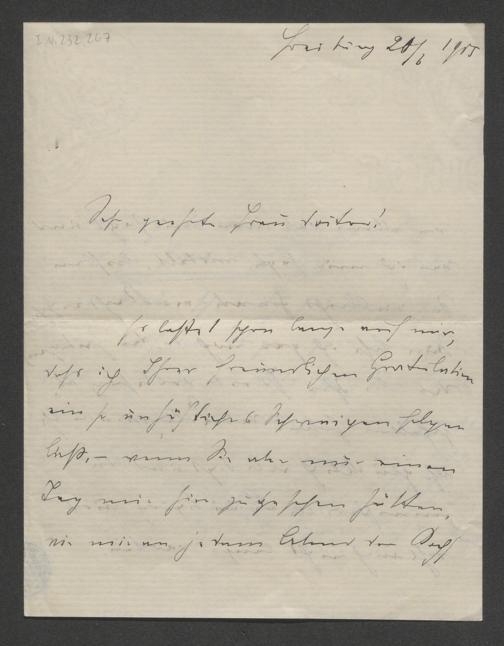 I.N. 232.267
Freiburg 20/6 1915
Sehr geehrte Frau Doktor!
Es lastet schon lange auf mir,
daß ich Ihrer freundlichen Gratulation
ein so unhöfliches Schweigen folgen
ließ, – wenn Sie aber nur einen
Tag mir hier zugesehen hätten,
wie mir an jedem Abend der Kopf